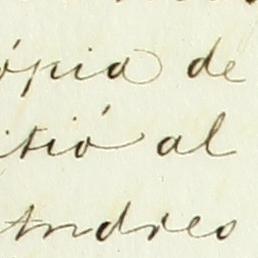 ópia de
itió al
Andres